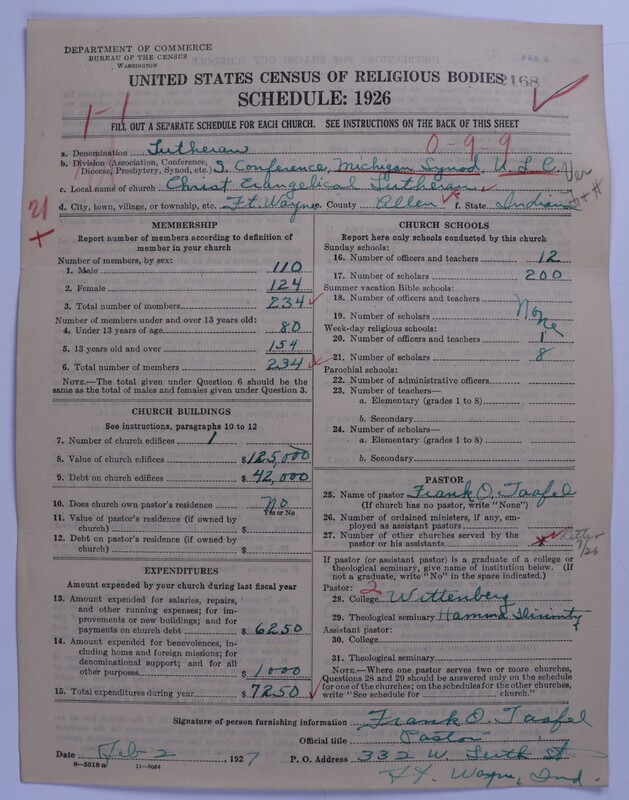 DEPARTMENT OF COMMERCE
BUREAU OF THE CENSUS
WASHINGTON
UNITED STATES CENSUS OF RELIGIOUS BODIES
2168
SCHEDULE: 1926
FILL OUT A SEPARATE SCHEDULE FOR EACH CHURCH. SEE INSTRUCTIONS ON THE BACK OF THIS SHEET
a. Denomination Lutheran 0-9-9
b. Division (Association, Conference, Diocese, Presbytery, Synod, etc.) S. Conference, Michigan Synod, U.L.C.
c. Local name of church Christ Evangelical Lutheran
d. City, town, village, or township, etc. Ft. Wayne e. County Allen f. State Indiana
MEMBERSHIP
Report number of members according to definition of member in your church
Number of members, by sex:
1. Male 110
2. Female 124
3. Total number of members 234
Number of members under and over 13 years old:
4. Under 13 years of age 80
5. 13 years old and over 154
6. Total number of members 234
NOTE.—The total given under Question 6 should be the same as the total of males and females given under Question 3.
CHURCH BUILDINGS
See instructions, paragraphs 10 to 12
7. Number of church edifices 1
8. Value of church edifices $125,000
9. Debt on church edifices $42,000
10. Does church own pastor's residence No
Yes or No
11. Value of pastor's residence (if owned by church) $
12. Debt on pastor's residence (if owned by church) $
EXPENDITURES
Amount expended by your church during last fiscal year
13. Amount expended for salaries, repairs, and other running expenses; for improvements or new buildings; and for payments on church debt $ 6250
14. Amount expended for benevolences, including home and foreign missions; for denominational support; and for all other purposes $ 1000
15. Total expenditures during year $ 7250
CHURCH SCHOOLS
Report here only schools conducted by this church
Sunday schools:
16. Number of officers and teachers 12
17. Number of scholars 200
Summer vacation Bible schools:
18. Number of officers and teachers
19. Number of scholars None
Week-day religious schools:
20. Number of officers and teachers 1
21. Number of scholars 8
Parochial schools:
22. Number of administrative officers
23. Number of teachers—
a. Elementary (grades 1 to 8)
b. Secondary
24. Number of scholars—
a. Elementary (grades 1 to 8)
b. Secondary
PASTOR
25. Name of pastor Frank O. Taafel
(If church has no pastor, write "None")
26. Number of ordained ministers, if any, employed as assistant pastors
27. Number of other churches served by the pastor or his assistants
If pastor (or assistant pastor) is a graduate of a college or theological seminary, give name of institution below. (If not a graduate, write "No" in the space indicated.)
Pastor: 2
28. College Wittenberg
29. Theological seminary Hamma Divinity
Assistant pastor:
30. College
31. Theological seminary
NOTE.—Where one pastor serves two or more churches, Questions 28 and 29 should be answered only on the schedule for one of the churches; on the schedules for the other churches, write "See schedule for church."
Signature of person furnishing information Frank O. Taafel
Official title Pastor
Date Feb 2, 1927 P. O. Address 332 W.
Ft. Wayne, Ind.
8—5518a 11—9054